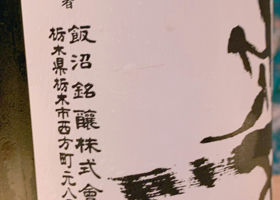 者
飯沼銘醸株式會
栃木県栃木市西方町元八